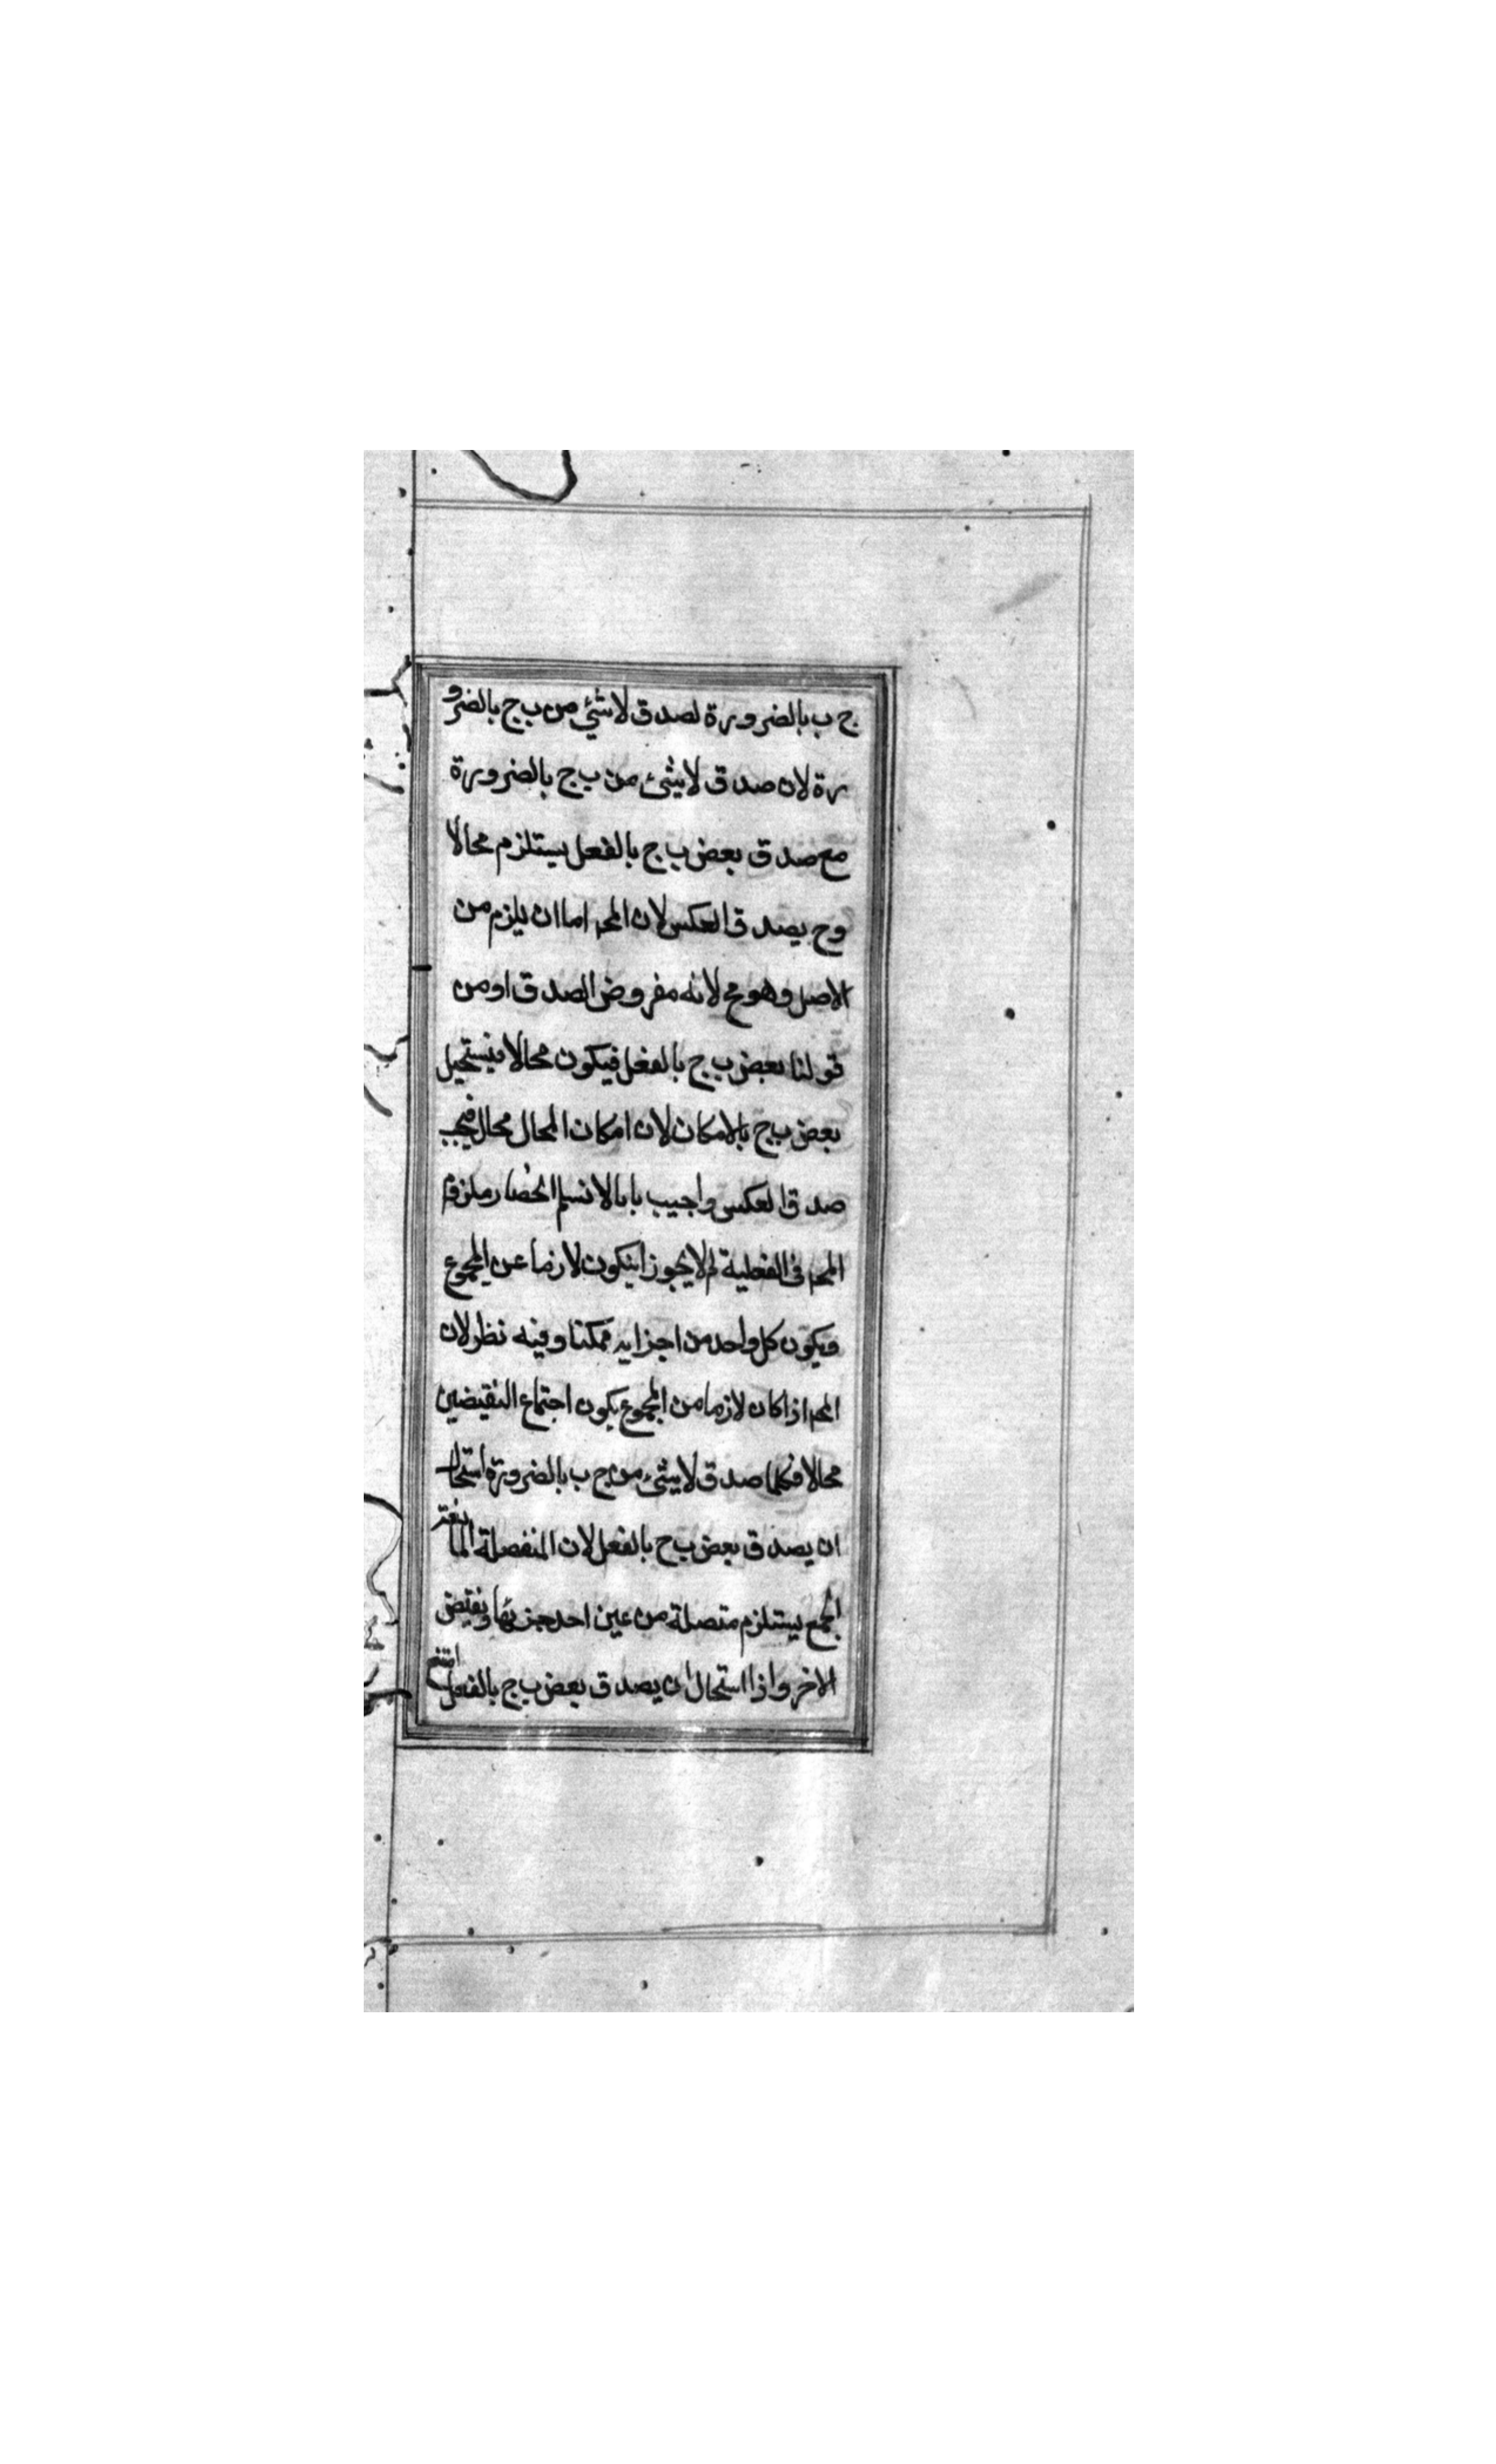 ج ب بالضرورة لصدق لا شئ من ب ج بالضرو
رة لان صدق لا شئ من ب ج بالضرورة
مع صدق بعض ب ج بالفعل يستلزم محالا
وح يصدق العكس لان المح اما ان يلزم من
الاصل وهو مح لانه مفروض الصدق او من
قولنا بعض ب ج بالفعل فيكون محالا فيستحيل
بعض ب ج بالامكان لان امكان المحال محال فيجب
صدق العكس واجيب بانا لا نسلم انحصار ملزوم
المح فى الفعلية لم لا يجوز ان يكون لازما عن المجموع
ويكون كل واحد من اجزايه ممكنا وفيه نظر لان
المح اذا كان لازما من المجموع يكون اجتماع النقيضين
محالا فكلما صدق لا شئ من ج ب بالضرورة استحال
ان يصدق بعض ب ج بالفعل لان المنفصلة المانعة
الجمع يستلزم متصلة من عين احد جزئها ونقيض
الاخر واذا استحال ان يصدق بعض ب ج بالفعل امتنع